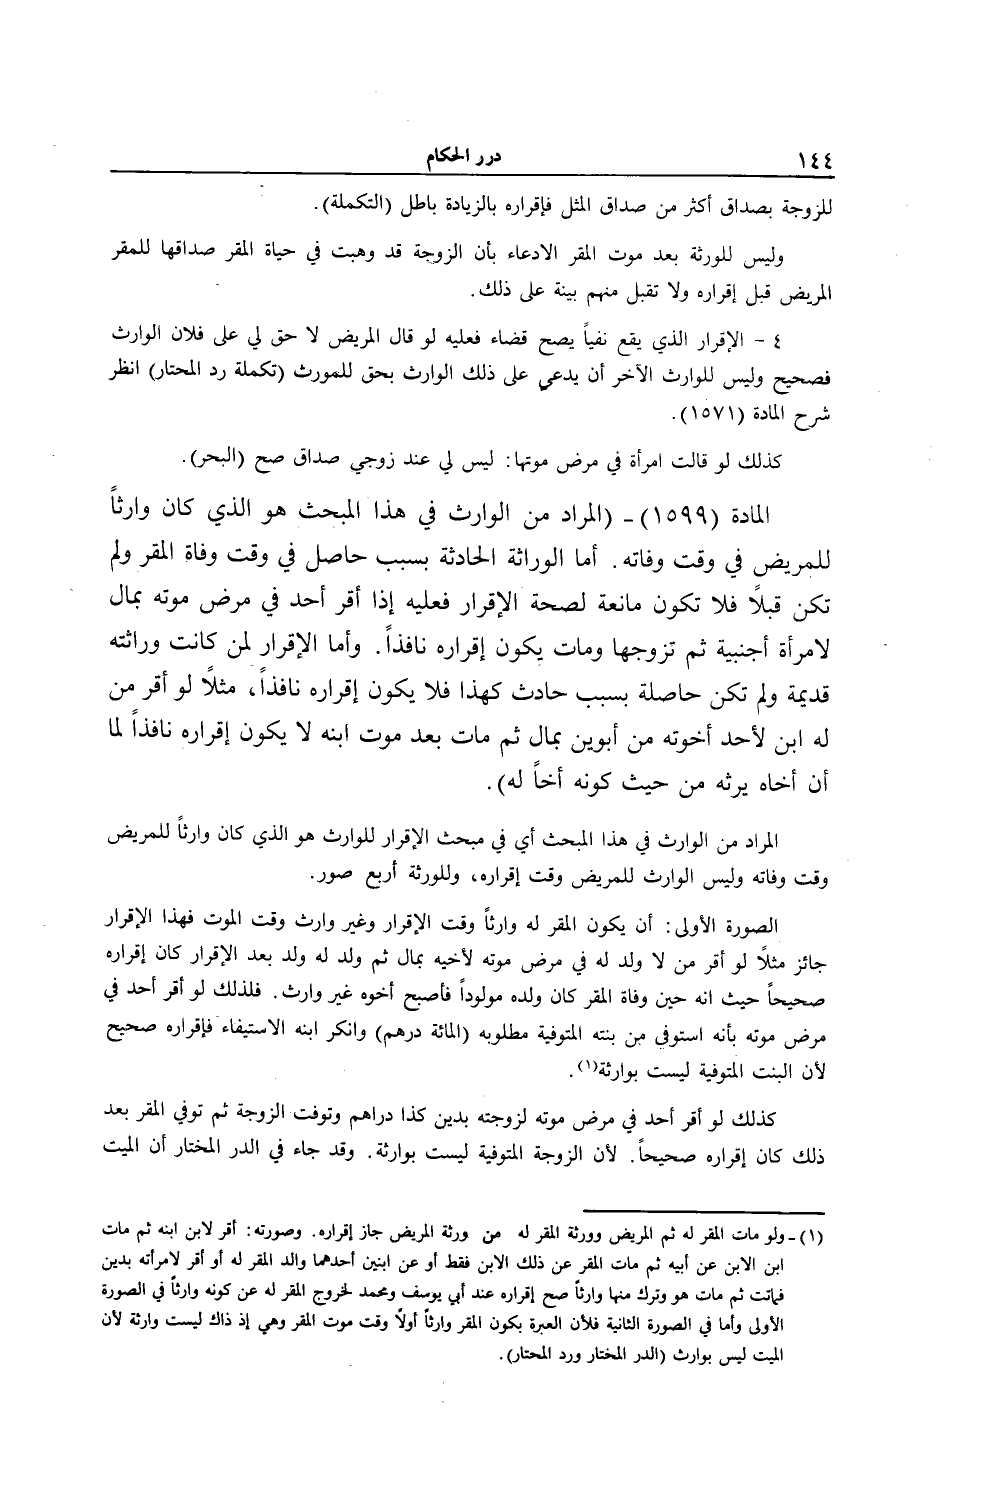 ١٤٤ درر الحكام
للزوجة بصداق أكثر من صداق المثل فإقراره بالزيادة باطل (التكملة).
وليس للورثة بعد موت المقر الادعاء بأن الزوجة قد وهبت في حياة المقر صداقها للمقر
المريض قبل إقراره ولا تقبل منهم بينة على ذلك.
٤ - الإقرار الذي يقع نفياً يصح قضاء فعليه لو قال المريض لا حق لي على فلان الوارث
فصحيح وليس للوارث الآخر أن يدعي على ذلك الوارث بحق للمورث (تكملة رد المحتار) انظر
شرح المادة (١٥٧١).
كذلك لو قالت امرأة في مرض موتها: ليس لي عند زوجي صداق صح (البحر).
المادة (١٥٩٩) - (المراد من الوارث في هذا المبحث هو الذي كان وارثاً
للمريض في وقت وفاته. أما الوراثة الحادثة بسبب حاصل في وقت وفاة المقر ولم
تكن قبلاً فلا تكون مانعة لصحة الإقرار فعليه إذا أقر أحد في مرض موته بمال
لامرأة أجنبية ثم تزوجها ومات يكون إقراره نافذاً. وأما الإقرار لمن كانت وراثته
قديمة ولم تكن حاصلة بسبب حادث كهذا فلا يكون إقراره نافذاً، مثلًا لو أقر من
له ابن لأحد أخوته من أبوين بمال ثم مات بعد موت ابنه لا يكون إقراره نافذاً لما
أن أخاه يرثه من حيث كونه أخاً له).
المراد من الوارث في هذا المبحث أي في مبحث الإقرار للوارث هو الذي كان وارثاً للمريض
وقت وفاته وليس الوارث للمريض وقت إقراره، وللورثة أربع صور.
الصورة الأولى: أن يكون المقر له وارثاً وقت الإقرار وغير وارث وقت الموت فهذا الإقرار
جائز مثلًا لو أقر من لا ولد له في مرض موته لأخيه بمال ثم ولد له ولد بعد الإقرار كان إقراره
صحيحاً حيث انه حين وفاة المقر كان ولده مولوداً فأصبح أخوه غير وارث. فلذلك لو أقر أحد في
مرض موته بأنه استوفى من بنته المتوفية مطلوبه (المائة درهم) وانكر ابنه الاستيفاء فإقراره صحيح
لأن البنت المتوفية ليست بوارثة(١).
كذلك لو أقر أحد في مرض موته لزوجته بدين كذا دراهم وتوفت الزوجة ثم توفي المقر بعد
ذلك كان إقراره صحيحاً. لأن الزوجة المتوفية ليست بوارثة. وقد جاء في الدر المختار أن الميت
(١) - ولو مات المقر له ثم المريض وورثة المقر له من ورثة المريض جاز إقراره. وصورته: أقر لابن ابنه ثم مات
ابن الابن عن أبيه ثم مات المقر عن ذلك الابن فقط أو عن ابنين أحدهما والد المقر له أو أقر لامرأته بدين
فماتت ثم مات هو وترك منها وارثاً صح إقراره عند أبي يوسف ومحمد لخروج المقر له عن كونه وارثاً في الصورة
الأولى وأما في الصورة الثانية فلأن العبرة بكون المقر وارثاً أولاً وقت موت المقر وهي إذ ذاك ليست وارثة لأن
الميت ليس بوارث (الدر المختار ورد المحتار).